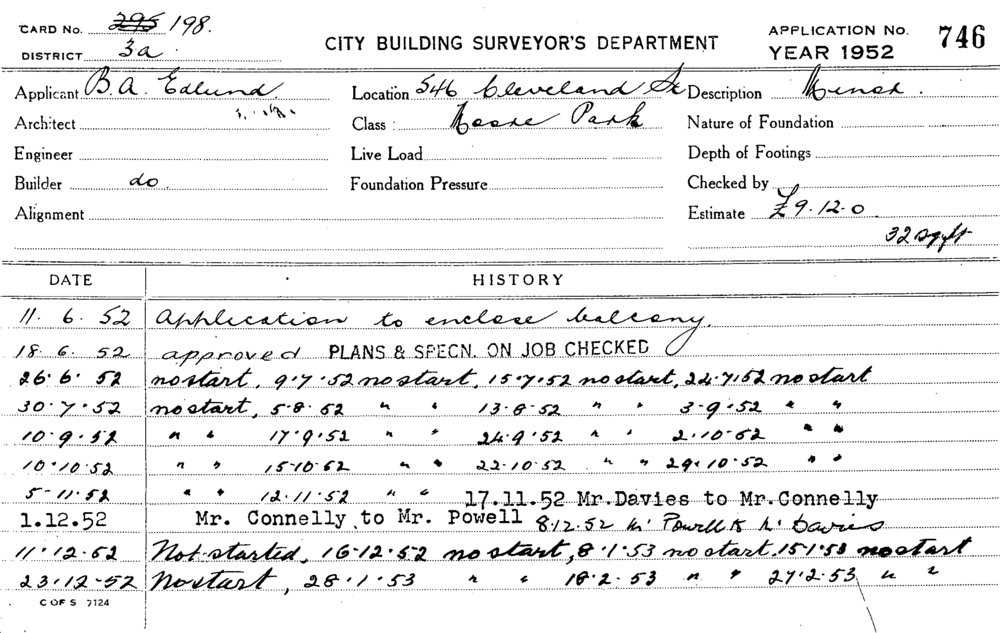 CARD No. 295 198.
DISTRICT 3a
CITY BUILDING SURVEYOR'S DEPARTMENT
APPLICATION No. 746
YEAR 1952
Applicant B.A. Edlund Location 546 Cleveland St Description Minor.
Architect Class Moore Park Nature of Foundation
Engineer Live Load Depth of Footings
Builder do Foundation Pressure Checked by
Alignment Estimate £9.12.0
32 sq ft
DATE HISTORY
11. 6. 52 Application to enclose balcony.
18. 6. 52 approved PLANS & SPECN. ON JOB CHECKED
26. 6. 52 no start, 9.7.52 no start, 15.7.52 no start, 24.7.52 no start
30.7.52 no start, 5.8.52 " " 13.8.52 " " 3.9.52 " "
10.9.52 " " 17.9.52 " " 24.9.52 " " 2.10.52 " "
10.10.52 " " 15.10.52 " " 22.10.52 " " 29.10.52 " "
5-11.52 " " 12.11.52 " " 17.11.52 Mr.Davies to Mr.Connelly
1.12.52 Mr. Connelly to Mr. Powell 8.12.52 Mr Powell to Mr Davies
11.12.52 Not started, 16.12.52 no start, 8.1.53 no start, 15.1.53 no start
23.12-52 No start, 28.1.53 " " 18.2.53 " " 27.2.53 " "
C OF S 7124